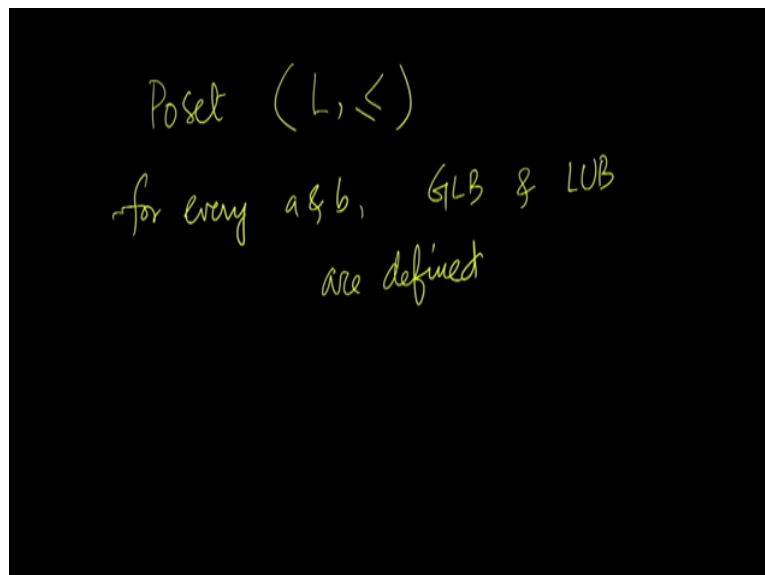 Poset (L, ≤)
for every a & b, GLB & LUB
are defined